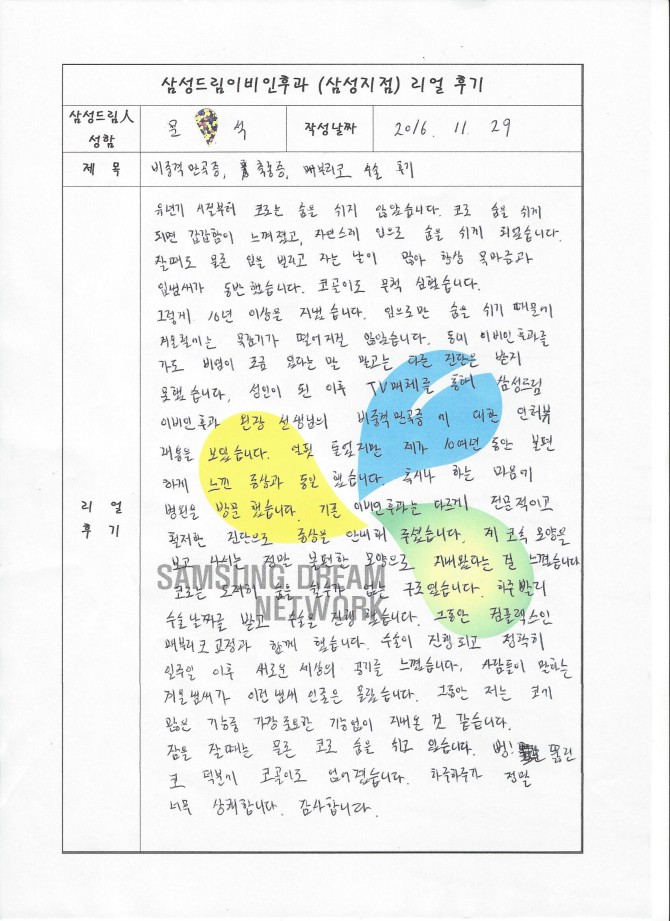 삼성드림이비인후과 (삼성지점) 리얼 후기
삼성드림人
성함
문 석
작성날짜
2016. 11. 29
제 목
비중격만곡증, 축농증, 매부리코 수술 후기
리 얼
후 기
유년기 시절부터 코로는 숨을 쉬지 않았습니다. 코로 숨을 쉬게
되면 갑갑함이 느껴졌고, 자연스레 입으로 숨을 쉬게 되었습니다.
잘때도 물론 입을 벌리고 자는 날이 많아 항상 목마름과
입냄새가 동반했습니다. 코골이도 무척 심했습니다.
그렇게 10년 이상을 지냈습니다. 입으로만 숨을 쉬기 때문에
겨울철에는 목감기가 떨어지질 않았습니다. 동네 이비인후과를
가도 비염이 조금 있다는 말 말고는 다른 진단은 받지
못했습니다. 성인이 된 이후 TV매체를 통해 삼성드림
이비인후과 원장 선생님의 비중격만곡증에 대한 인터뷰
내용을 보았습니다. 얼핏 들었지만 제가 10여년 동안 불편
하게 느낀 증상과 동일했습니다. 혹시나 하는 마음에
병원을 방문했습니다. 기존 이비인후과는 다르게 전문적이고
철저한 진단으로 증상을 안내해 주셨습니다. 제 코속 모양을
보고 나서는 정말 불편한 모양으로 지내왔다는 걸 느꼈습니다
코로는 도저히 숨을 쉴수가 없는 구조였습니다. 하루빨리
수술날짜를 잡고 수술을 진행했습니다. 그동안 컴플렉스인
매부리코교정과 함께 했습니다. 수술이 진행되고 정확히
일주일 이후 새로운 세상의 공기를 느꼈습니다. 사람들이 말하는
겨울냄새가 이런 냄새 인줄은 몰랐습니다. 그동안 저는 코가
많은 기능중 가장 중요한 기능없이 지내온 것 같습니다.
잠을 잘때는 물론 코로 숨을 쉬고 있습니다. 뻥! 뚫린
코 덕분에 코골이도 없어졌습니다. 하루하루가 정말
너무 상쾌합니다. 감사합니다.
SAMSUNG DREAM
NETWORK